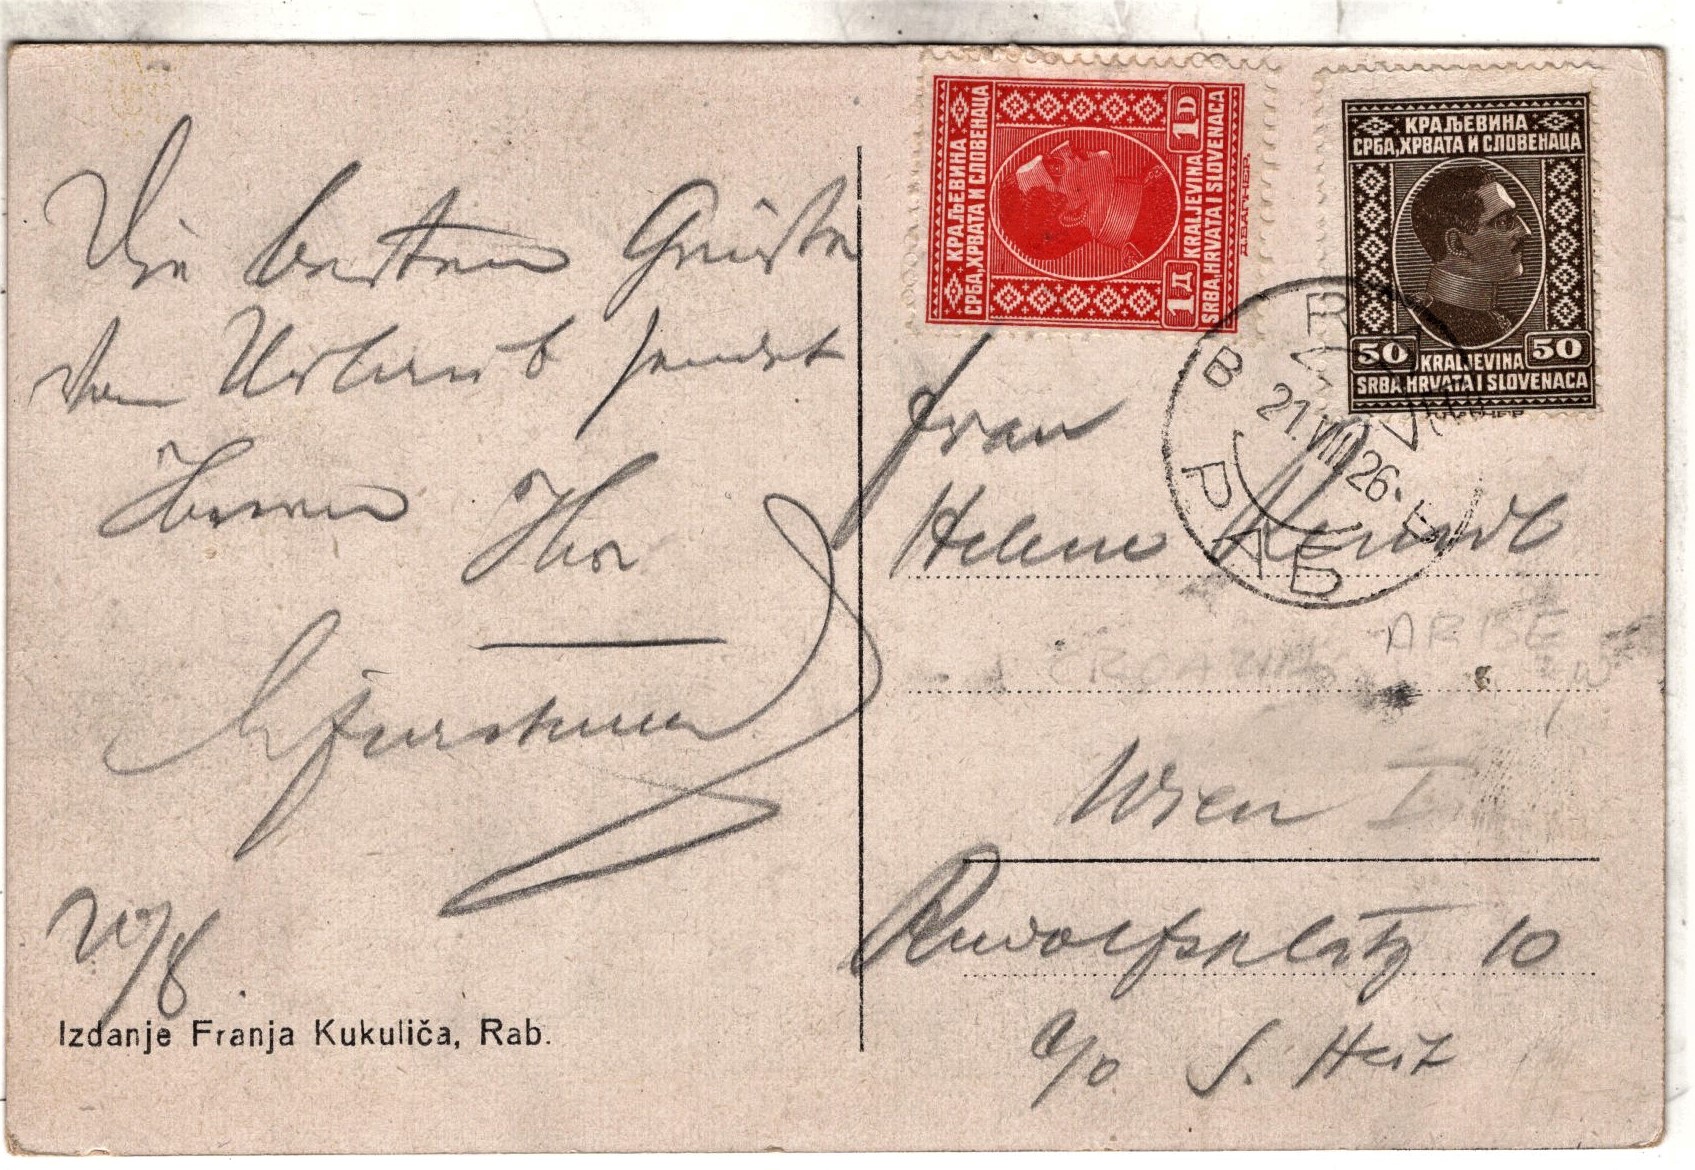 Die besten Grüsse
vom Urlaub sendet
Ihnen Ihr
20/8
Izdanje Franja Kukuliča, Rab.
КРАЉЕВИНА
СРБА, ХРВАТА И СЛОВЕНАЦА
1D
1Д
KRALJEVINA
SRBA, HRVATA I SLOVENACA
КРАЉЕВИНА
СРБА, ХРВАТА И СЛОВЕНАЦА
50 50
KRALJEVINA
SRBA, HRVATA I SLOVENACA
RAB
21.VIII.26
РАБ
Frau
Helene
Wien I
Rudolfsplatz 10
c/o S.